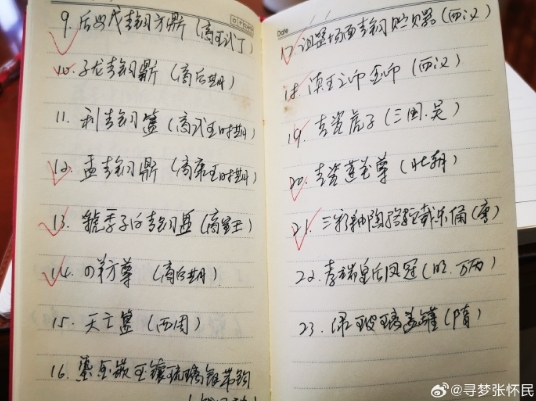 9. 后母戊青铜方鼎 (商王武丁)
10. 子龙青铜鼎 (商后期)
11. 利青铜簋 (商武王时期)
12. 盂青铜鼎 (商康王时期)
13. 虢季子白青铜盘 (商宣王)
14. 四羊方尊 (商后期)
15. 天亡簋 (西周)
16. 鎏金嵌玉镶琉璃银带钩
Date
17. 诅盟场面青铜贮贝器 (西汉)
18. 滇王之印金印 (西汉)
19. 青瓷虎子 (三国.吴)
20. 青瓷莲花尊 (北朝)
21. 三彩釉陶骆驼载乐俑 (唐)
22. 孝端皇后凤冠 (明.万历)
23. 绿玻璃盖罐 (隋)
@寻梦张怀民